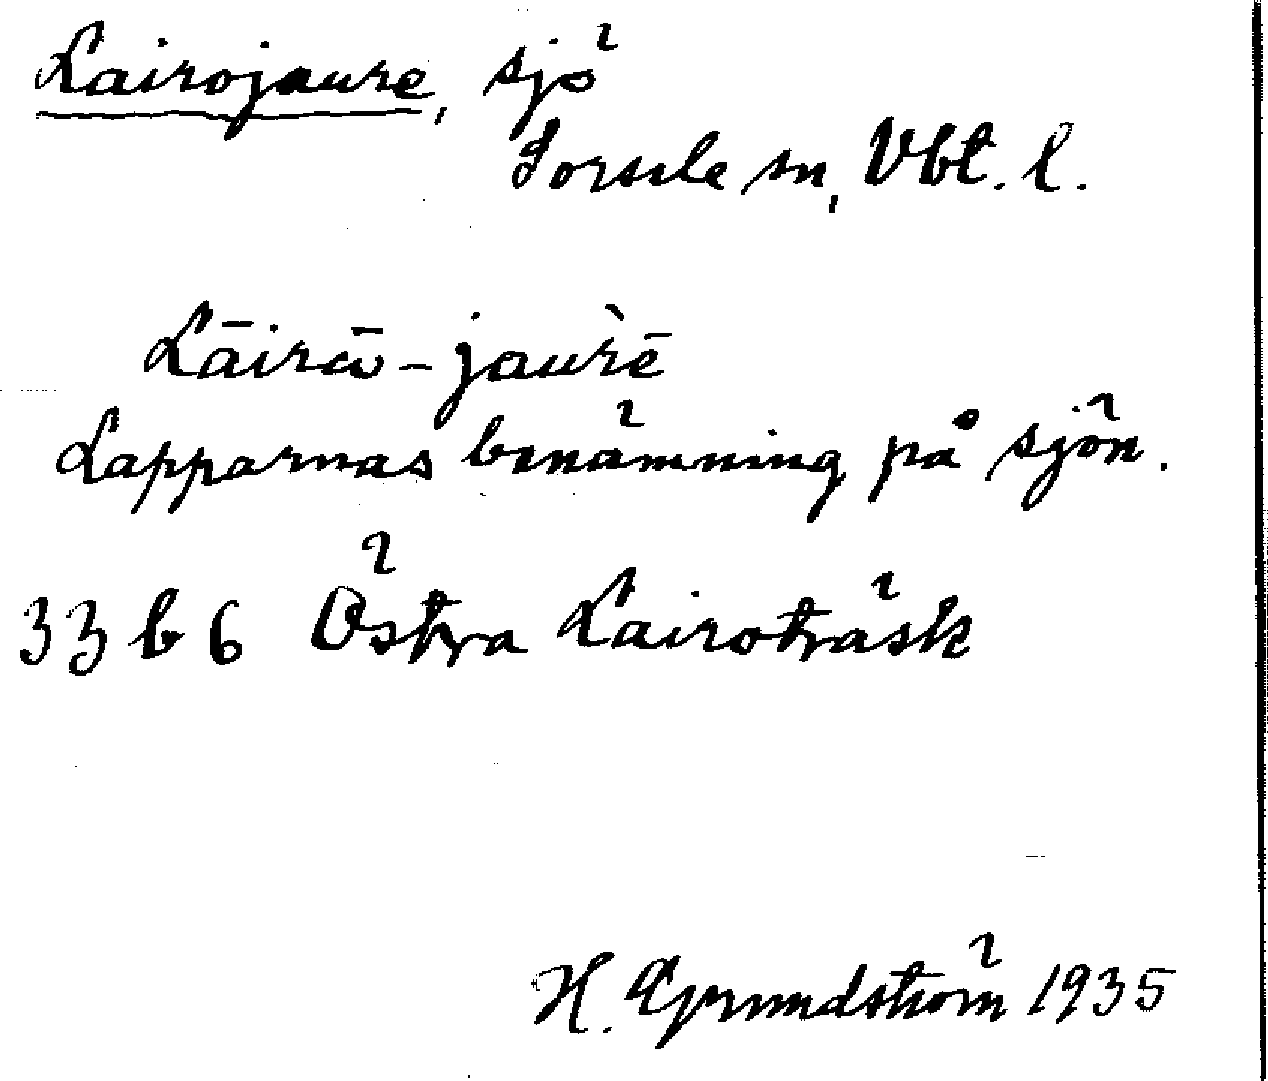 Lairojaure, sjö
Sorsele sn, Vbt. l.
Lāirā-jaùrē
Lapparnas benämning på sjön.
33 b 6 Östra Lairoträsk
H. Grundström 1935